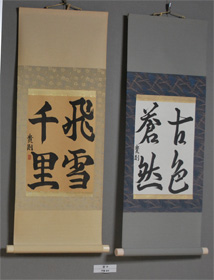 飛雪
千里
古色
蒼然